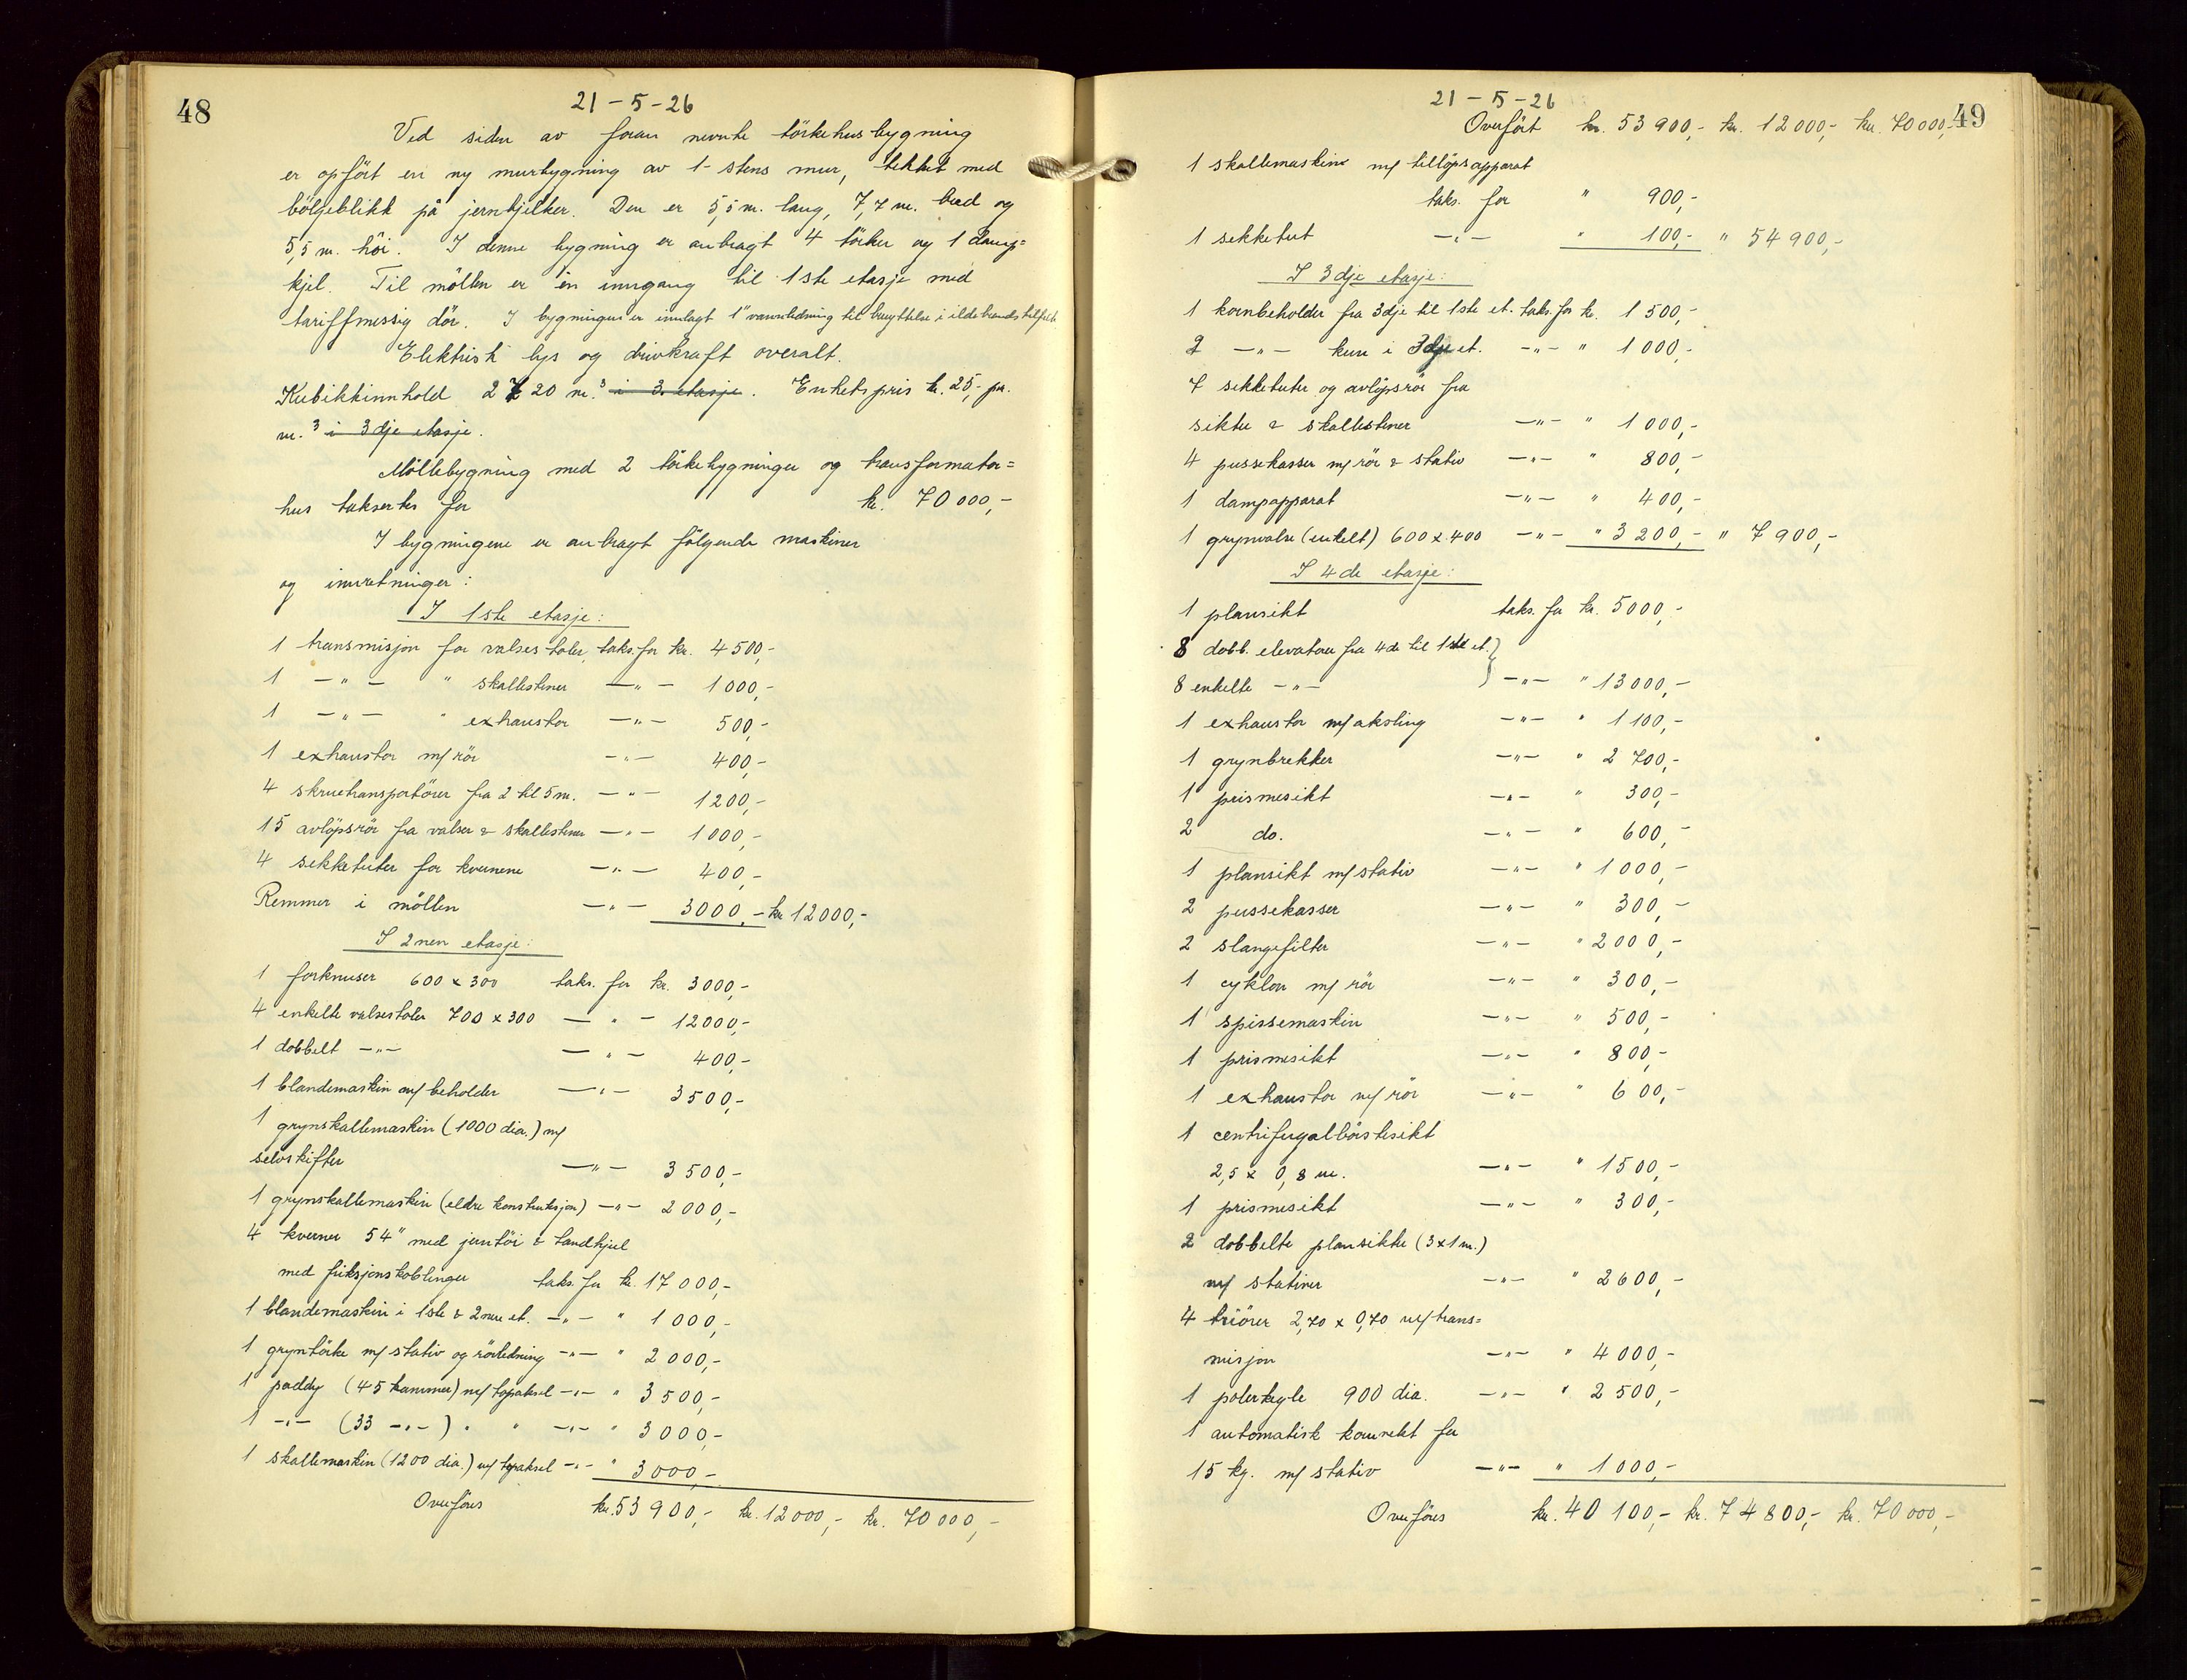 48
21 - 5 - 26
Ved siden av foran nevnte törkehusbygning
er opfört en ny murbygning av 1-stens mur, tekket med
bölgeblikk på jernbjelker. Den er 5,5 m. lang, 7,7 m. bred og
5,5 m. höi. I denne bygning er anbragt 4 törker og 1 damp=
kjel. Til möllen er én inngang til 1ste etasje med
tariffmessig dör. I bygningen er innlagt 1" vannledning til benyttelse i ildebrandstilfelle.
Elektrisk lys og drivkraft overalt.
Kubikkinnhold 2720 m.³ i 3. etasje. Enhetspris kr. 25,- pr.
m.³ i 3dje etasje.
Möllebygning med 2 törkebygninger og transformator=
hus takseres for kr. 70 000,-
I bygningene er anbragt fölgende maskiner
og innretninger:
I 1ste etasje:
1 transmisjon for valsestoler, taks. for kr. 4 500,-
1 -"- " skallestener -"- 1 000,-
1 -"- " exhaustor -"- 500,-
1 exhaustor m/rör -"- 400,-
4 skruetransportörer fra 2 til 5 m. -"- 1200,-
15 avlöpsrör fra valser & skallestener -"- 1000,-
4 sekketuter for kvernene -"- 400,-
Remmer i möllen -"- 3000,- kr 12000,-
I 2nen etasje:
1 forknuser 600 x 300 taks. for kr. 3000,-
4 enkelte valsestoler 700 x 300 -"- 12000,-
1 dobbelt -"- -"- 400,-
1 blandemaskin m/beholder -"- 3500,-
1 grynskallemaskin (1000 dia.) m/
selvskifter -"- 3500,-
1 grynskallemaskin (eldre konstruksjon) -"- 2000,-
4 kverner 54" med jerntöi & tandhjul
med friksjonskoblinger taks. for kr. 17 000,-
1 blandemaskin i 1ste & 2nen et. -"- " 1 000,-
1 gryntörke m/stativ og rörledning -"- " 2 000,-
1 paddy (45 kammer) m/topaksel -"- " 3 500,-
1 -"- (33 -"-) " " -"- " 3000,-
1 skallemaskin (1200 dia.) m/topaksel -"- " 3000,-
Overföres kr. 53 900,- kr. 12000,- kr. 70 000,-
49
21 - 5 - 26
Overfört kr. 53 900,- kr. 12 000,- kr. 70 000,-
1 skallemaskine m/ tillöpsapparat
taks. for " 900,-
1 sekketut -"- " 100,- " 54 900,-
I 3dje etasje:
1 kornbeholder fra 3dje til 1ste et. taks. for kr. 1 500,-
2 -"- kun i 3dje et. -"- " 1 000,-
7 sekketuter og avlöpsrör fra
sikter & skallestener -"- " 1 000,-
4 pussekasser m/rör & stativ -"- " 800,-
1 dampapparat -"- " 400,-
1 grynvalse (enkelt) 600 x 400 -"- " 3 200,- " 7 900,-
I 4de etasje:
1 plansikt taks. for kr. 5000,-
8 dobb. elevatorer fra 4de til 1ste et. }
8 enkelte -"- } -"- " 13000,-
1 exhaustor m/aksling -"- " 1 100,-
1 grynbrekker -"- " 2 700,-
1 prismesikt -"- " 300,-
2 do. -"- " 600,-
1 plansikt m/stativ -"- " 1 000,-
2 pussekasser -"- " 300,-
2 slangefilter -"- " 2000,-
1 cyklon m/ rör -"- " 300,-
1 spissemaskin -"- " 500,-
1 prismesikt -"- " 800,-
1 exhaustor m/ rör -"- " 600,-
1 centrifugalbörstesikt
2,5 x 0,8 m. -"- " 1500,-
1 prismesikt -"- " 300,-
2 dobbelte plansikte (3x1 m.)
m/ stativer -"- " 2600,-
4 triörer 2,70 x 0,70 m/trans=
misjon -"- " 4 000,-
1 polerkegle 900 dia. -"- " 2 500,-
1 automatisk kornvekt for
15 kg. m/ stativ -"- " 1 000,-
Overföres kr. 40 100,- kr. 74 800,- kr. 70 000,-